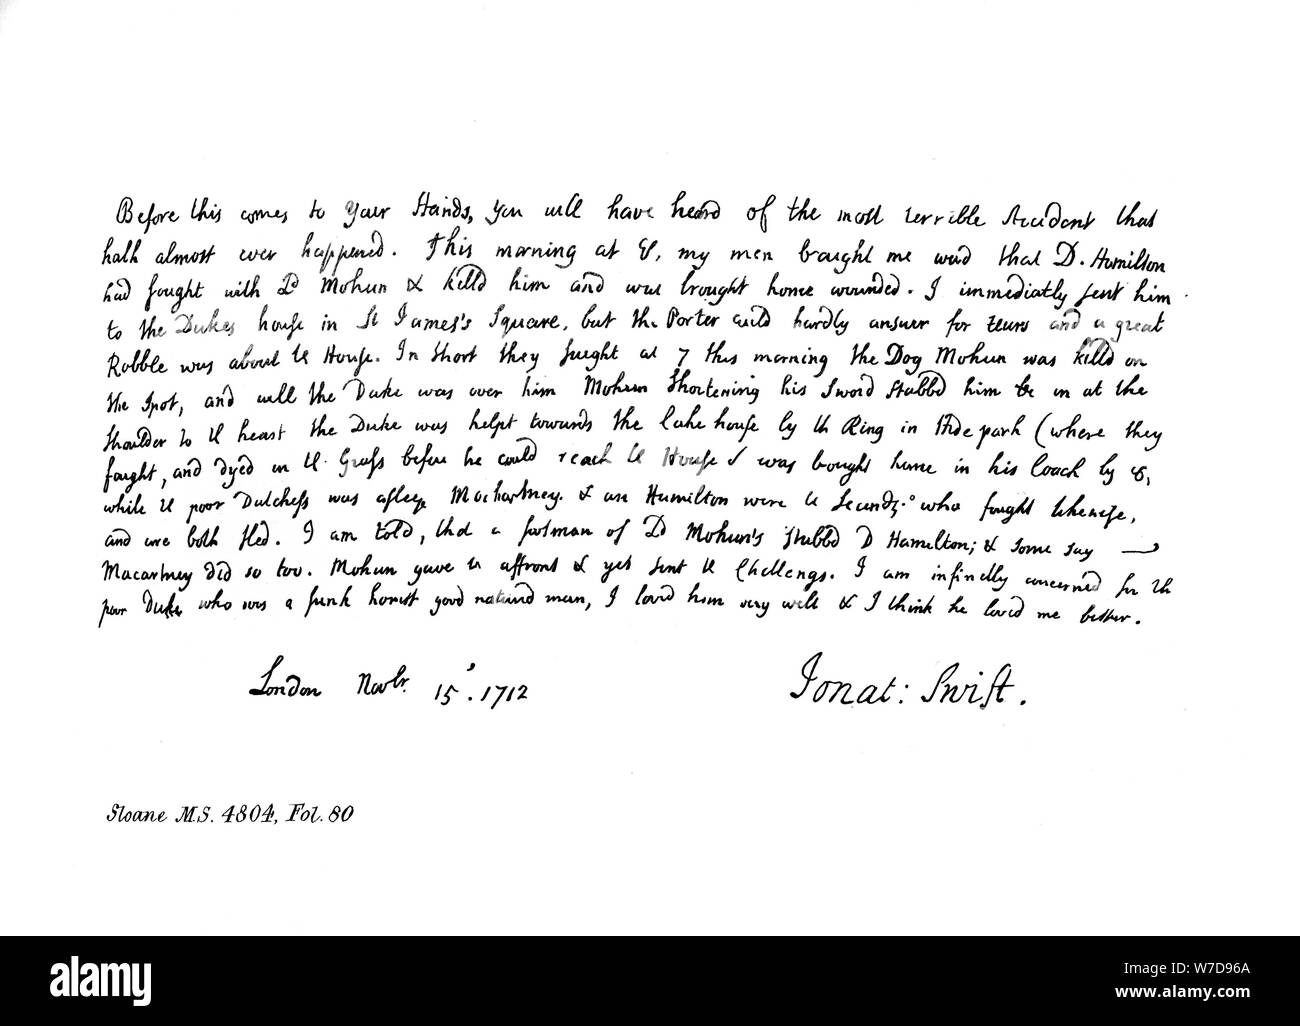 Before this comes to your Hands, you will have heard of the most terrible Accident that
hath almost ever happened. This morning at 8, my man brought me word that D. Hamilton
had fought with Ld Mohun & killd him and was brought home wounded. I immediatly sent him
to the Dukes house in St James's Square, but the Porter could hardly answer for tears and a great
Rabble was about the House. In short they fought at 7 this morning the Dog Mohun was killd on
the spot, and will the Duke was over him Mohun shortening his Sword stabbd him in at the
shoulder to the heart the Duke was helpt towards the lake house by the Ring in Hide park (where they
fought, and dyed on the Grass before he could reach the House & was bought home in his Coach by 8,
while the poor Dutchess was asleep Mackartney. & one Hamilton were the Seconds who fought likewise,
and are both fled. I am told, that a footman of Ld Mohun's stabbd D Hamilton; & some say
Macartney did so too. Mohun gave the affront & yet sent the Challenge. I am infinitly concerned for the
poor Duke who was a frank honest good natured man, I loved him very well & I think he loved me better.
London Novbr 15. 1712
Jonat: Swift.
Sloane M.S. 4804, Fol. 80
alamy
Image ID: W7D96A
www.alamy.com